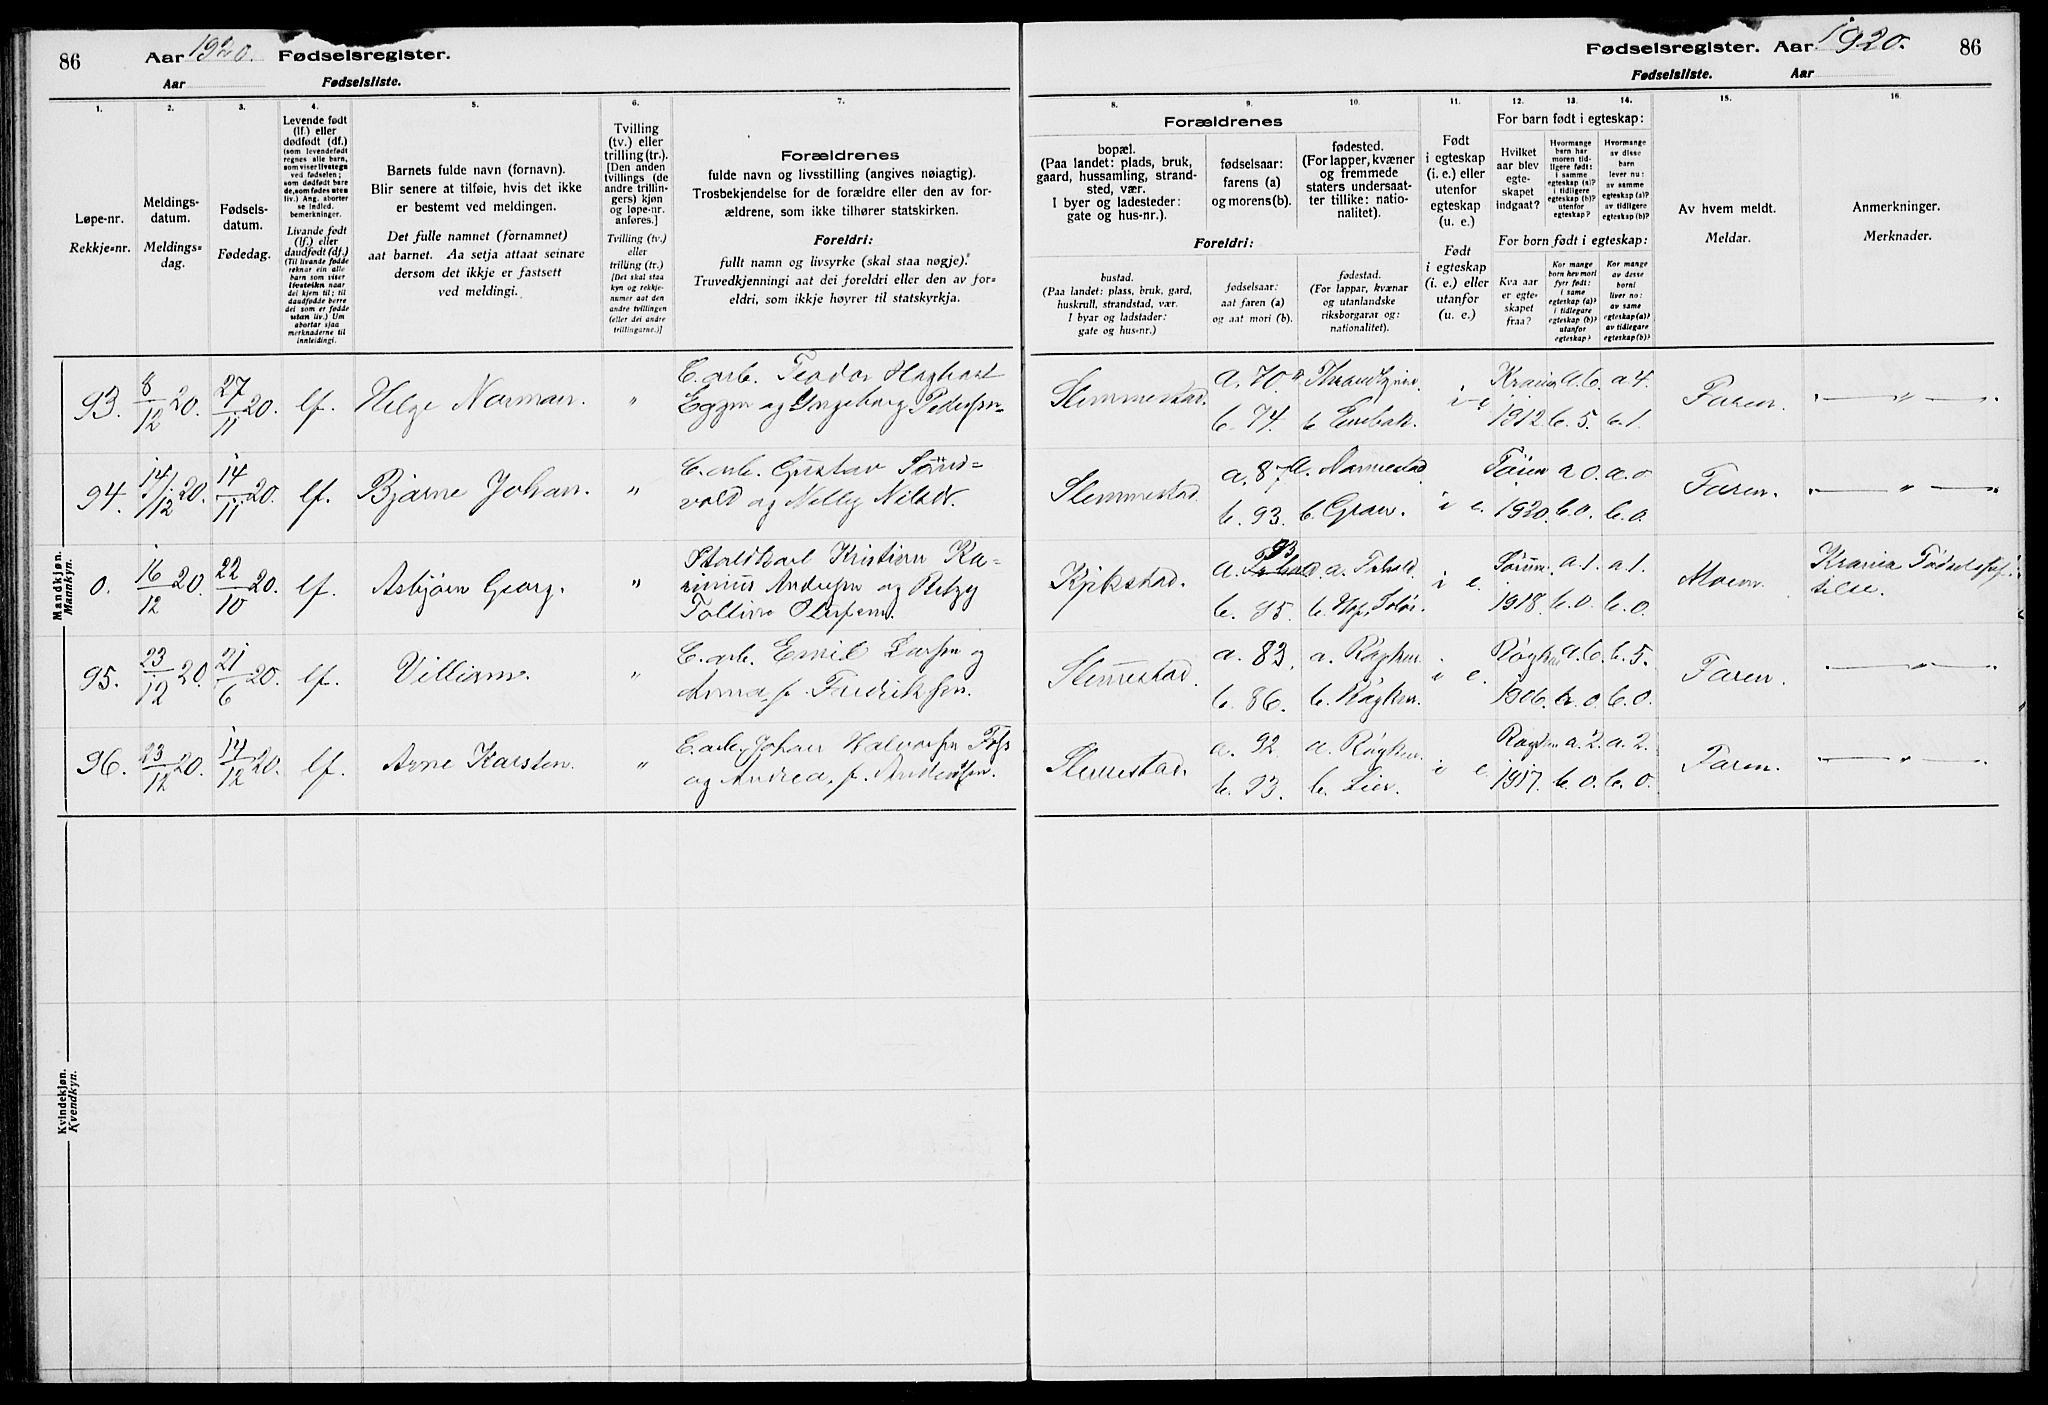 86
Aar 1920. Fødselsregister.
Aar Fødselsliste.
Fødselsregister. Aar 1920.
86
Fødselsliste. Aar
1. 2. 3. 4. 5. 6. 7.
Løpe-nr.
Rekkje-nr.
Meldings-
datum.
Meldings-
dag.
Fødsels-
datum.
Fødedag.
Levende født
(lf.) eller
dødfødt (df.)
(som levendefødt
regnes alle barn,
som viser livstegn
ved fødselen;
som dødfødt bare
de, som fødes uten
liv.) Ang. aborter
se indled.
bemerkninger.
Livande født
(lf.) eller
daudfødt (df.)
(Til livande fødde
reknar ein alle
barn som viser
livsteikn naar
dei kjem til; til
daudfødde berre
dei som er fødde
utan liv.) Um
abortar sjaa
merknaderne til
innleidingi.
Barnets fulde navn (fornavn).
Blir senere at tilføie, hvis det ikke
er bestemt ved meldingen.
Det fulle namnet (fornamnet)
aat barnet. Aa setja attaat seinare
dersom det ikkje er fastsett
ved meldingi.
Tvilling
(tv.) eller
trilling (tr.).
[Den anden
tvillings (de
andre trillin-
gers) kjøn
og løpe-nr.
anføres.]
Tvilling (tv.)
eller
trilling (tr.)
[Det skal staa
kyn og rekkje-
numer aat den
andre tvillingen
(eller dei andre
trillingarne.)]
Forældrenes
fulde navn og livsstilling (angives nøiagtig).
Trosbekjendelse for de forældre eller den av for-
ældrene, som ikke tilhører statskirken.
Foreldri:
fullt namn og livsyrke (skal staa nøgje).
Truvedkjenningi aat dei foreldri eller den av for-
eldri, som ikkje høyrer til statskyrkja.
8. 9. 10. 11. 12. 13. 14. 15. 16.
Forældrenes
bopæl.
(Paa landet: plads, bruk,
gaard, hussamling, strand-
sted, vær.
I byer og ladesteder:
gate og hus-nr.).
fødselsaar:
farens (a)
og morens (b).
fødested.
(For lapper, kvæner
og fremmede
staters undersaat-
ter tillike: natio-
nalitet).
Foreldri:
bustad.
(Paa landet: plass, bruk, gard,
huskrull, strandstad, vær.
I byar og ladstader:
gate og hus-nr.)
fødselsaar:
aat faren (a)
og aat mori (b).
fødestad.
(For lappar, kvænar
og utanlandske
riksborgarar og:
nationalitet).
Født
i egteskap
(i. e.) eller
utenfor
egteskap
(u. e.)
Født
i egteskap
(i. e.) eller
utanfor
(u. e.)
For barn født i egteskap:
Hvilket
aar blev
egte-
skapet
indgaat?
Hvormange
barn har
moren tid-
ligere født:
i samme
egteskap (a)?
i tidligere
egteskap (b)?
utenfor
egteskap?
Hvormange
av disse
barn
lever nu:
av samme
egteskap (a)?
av tidligere
egteskap (b)?
For born født i egteskap:
Kva aar
er egte-
skapet
fraa?
Kor mange
born hev mori
fyrr født:
i same
egteskap (a)?
i tidlegare
egteskap (b)?
utanfor
egteskap?
Kor mange
av desse
borni
liver no:
av same
egteskap (a)?
av tidlegare
egteskap (b)?
Av hvem meldt.
Meldar.
Anmerkninger.
Merknader.
Mandkjøn.
Mannkyn.
93. 8/12 20. 27/11 20. lf. Helge Norman. "
C. arb. Teodor
Eggen og Ingeborg Pedersen
Slemmestad.
a. 70
b. 74. b. Enebak.
i e
a. 6. a 4.
1912. b. 5. b. 1.
Faren. — " —
94. 14/12 20. 14/11 20. lf. Bjarne Johan. "
C. arb. Gustav
Slemmestad.
a. 87
b. 93. b. Gran.
i e.
a 0. a. 0
1920. b. 0. b. 0.
Faren. — " —
0. 16/12 20. 22/10 20. lf. Asbjørn Georg. "
Kristian Ka-
simius Andersen og
Kjekstad.
93
a.
b. 85.
i e.
Sørum. a. 1. a. 1.
1918. b. 0. b. 0.
Moren. Krania Fødselsstif-
telse.
95. 23/12 20. 21/6 20. lf. Villiam. "
C. arb. Emil Larsen og
Anna, f. Fredriksen.
Slemmestad.
a. 83. a. Røyken.
b. 86. b. Røyken.
i e.
Røyken a. 6. b. 5.
1906. b. 0. b. 0.
Faren. — " —
96. 23/12 20. 14/12 20. lf. Arne Karsten. "
C. arb. Johan Halvorsen
og Andrea, f. Andersen.
Slemmestad.
a. 92. a. Røyken.
b. 93. b. Lier.
i e.
Røyken a. 2. a. 2.
1917. b. 0. b. 0.
Faren. — " —
Kvindekjøn.
Kvendkyn.